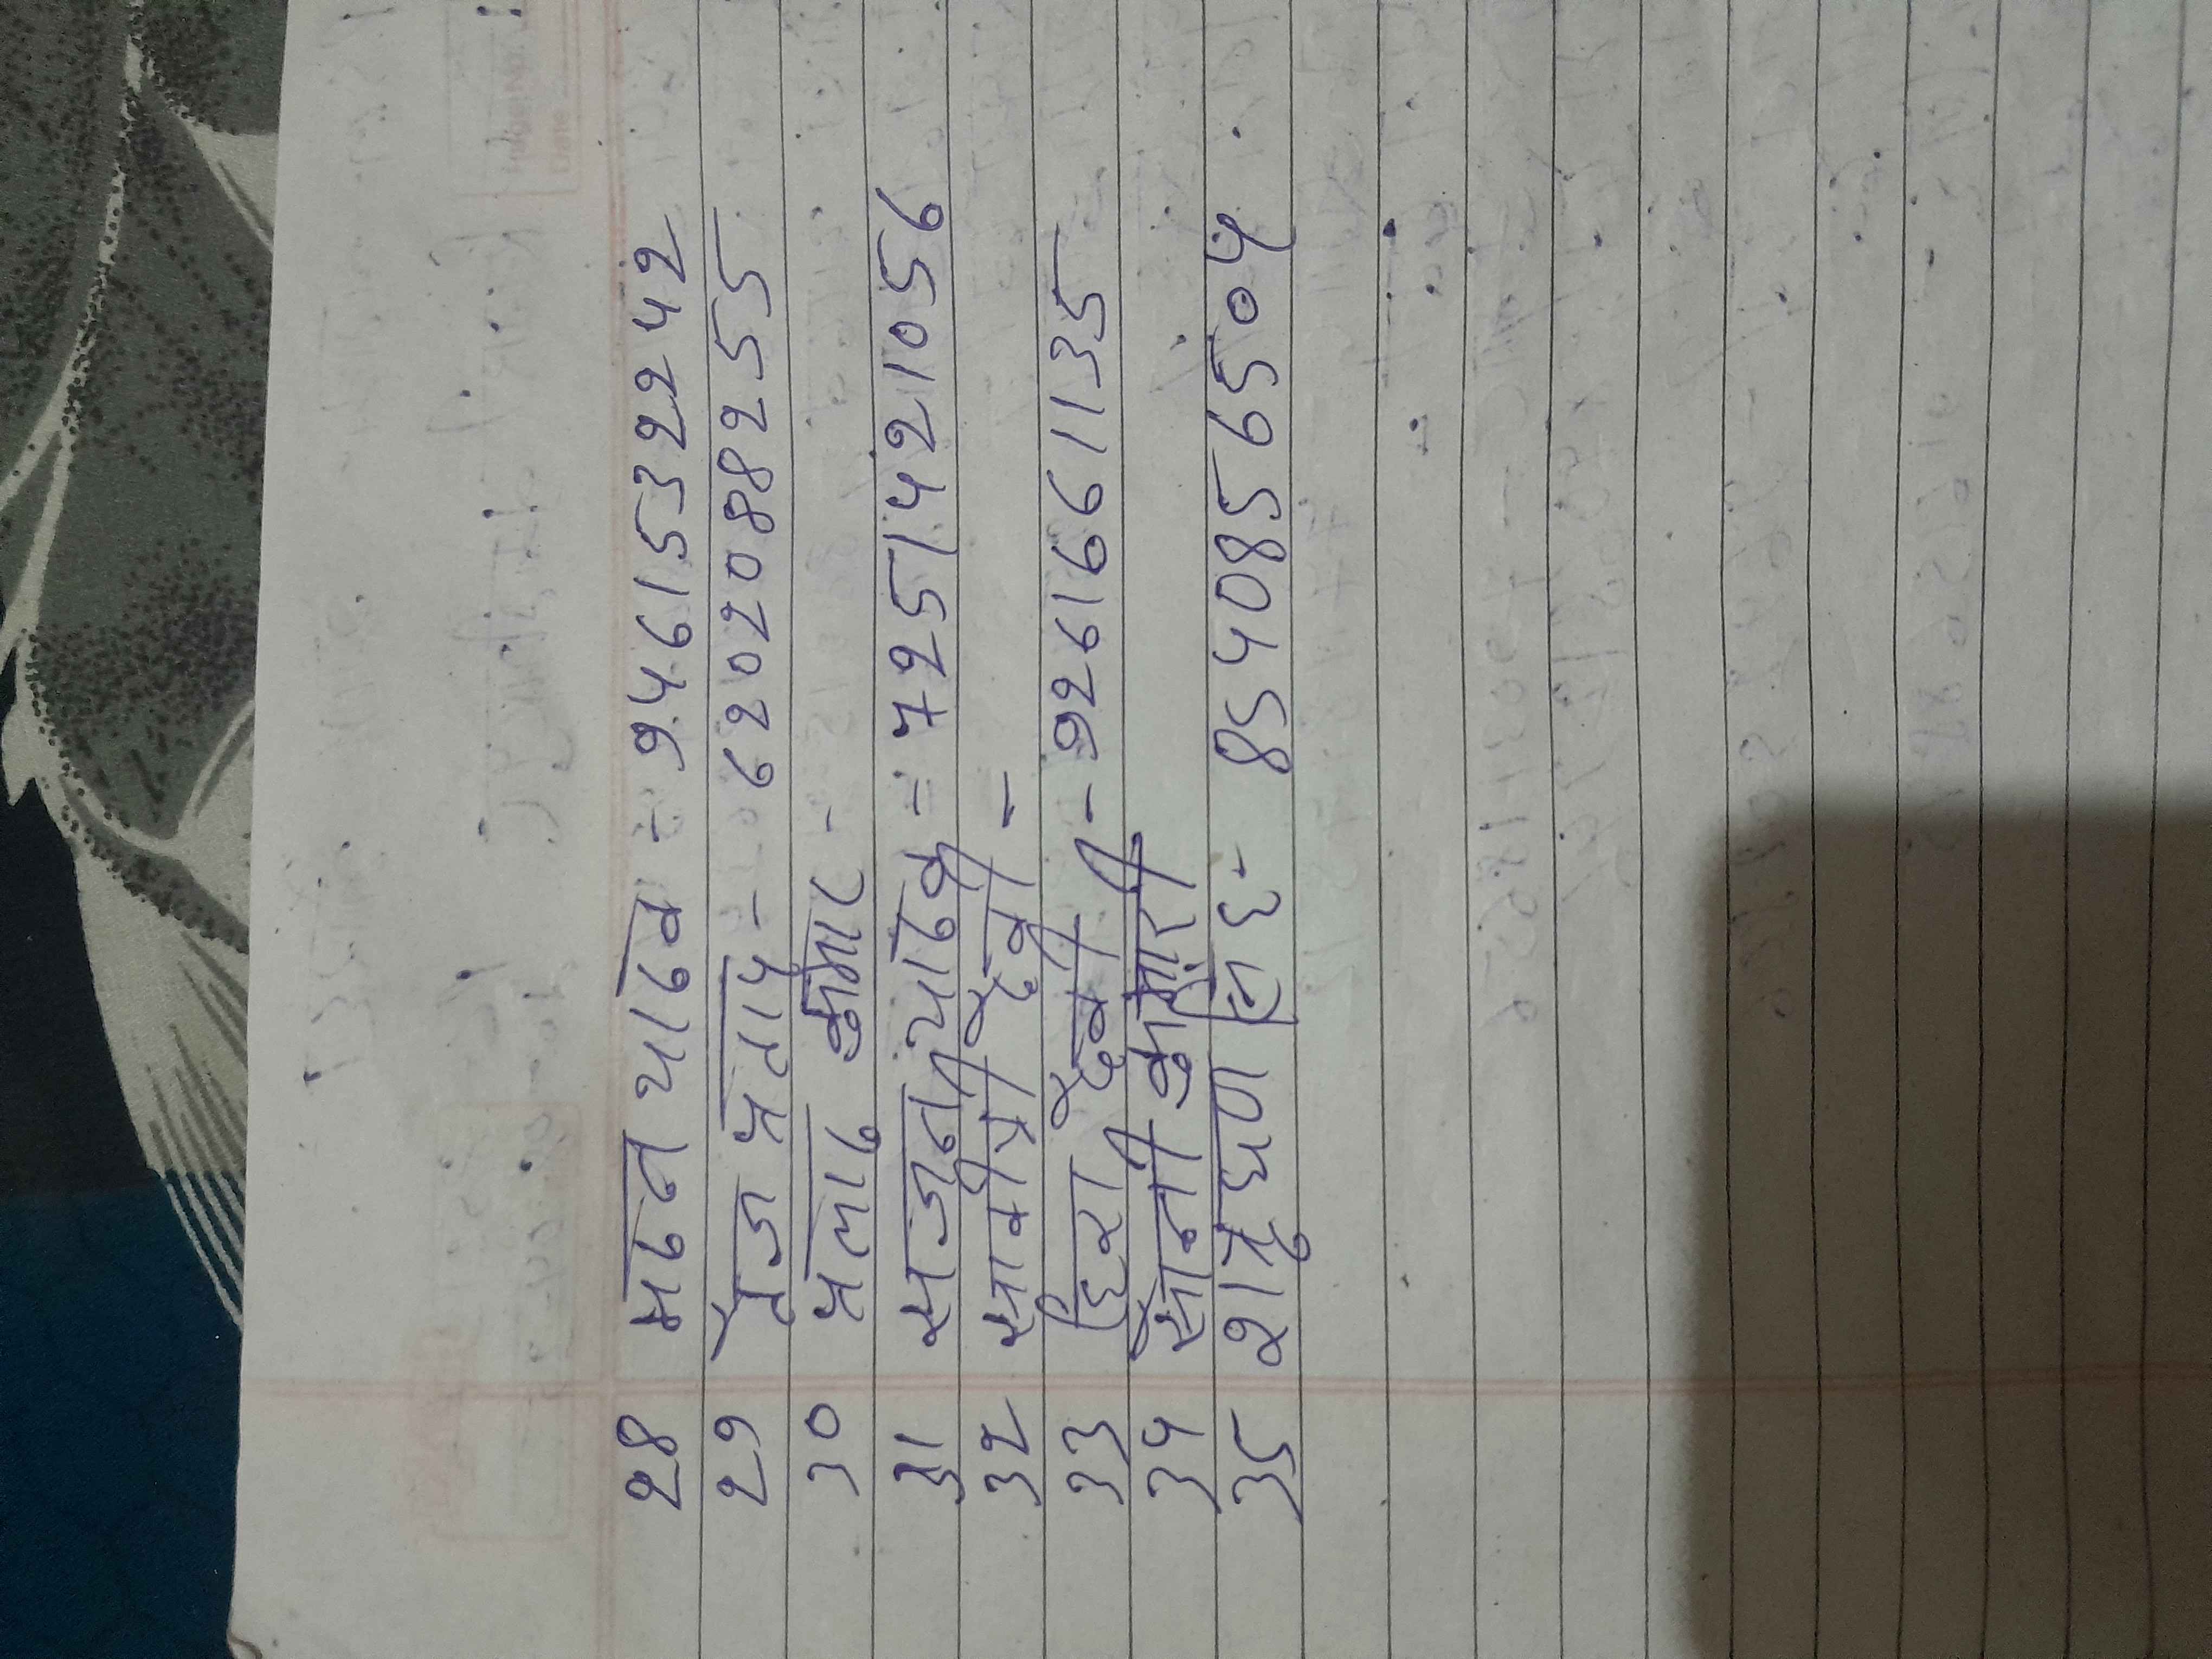 28 मदन यादव - 9461532242
29 तेज प्रताप - 6202088255
30 प्रलाद कुमार -
31 सजनी यादव - 7251421056
32 सावीत्री देवी -
33 हिरा देवी - 9261661135
34 सोनी कुमारी
35 शत्रुघण सिंह - 8540856504